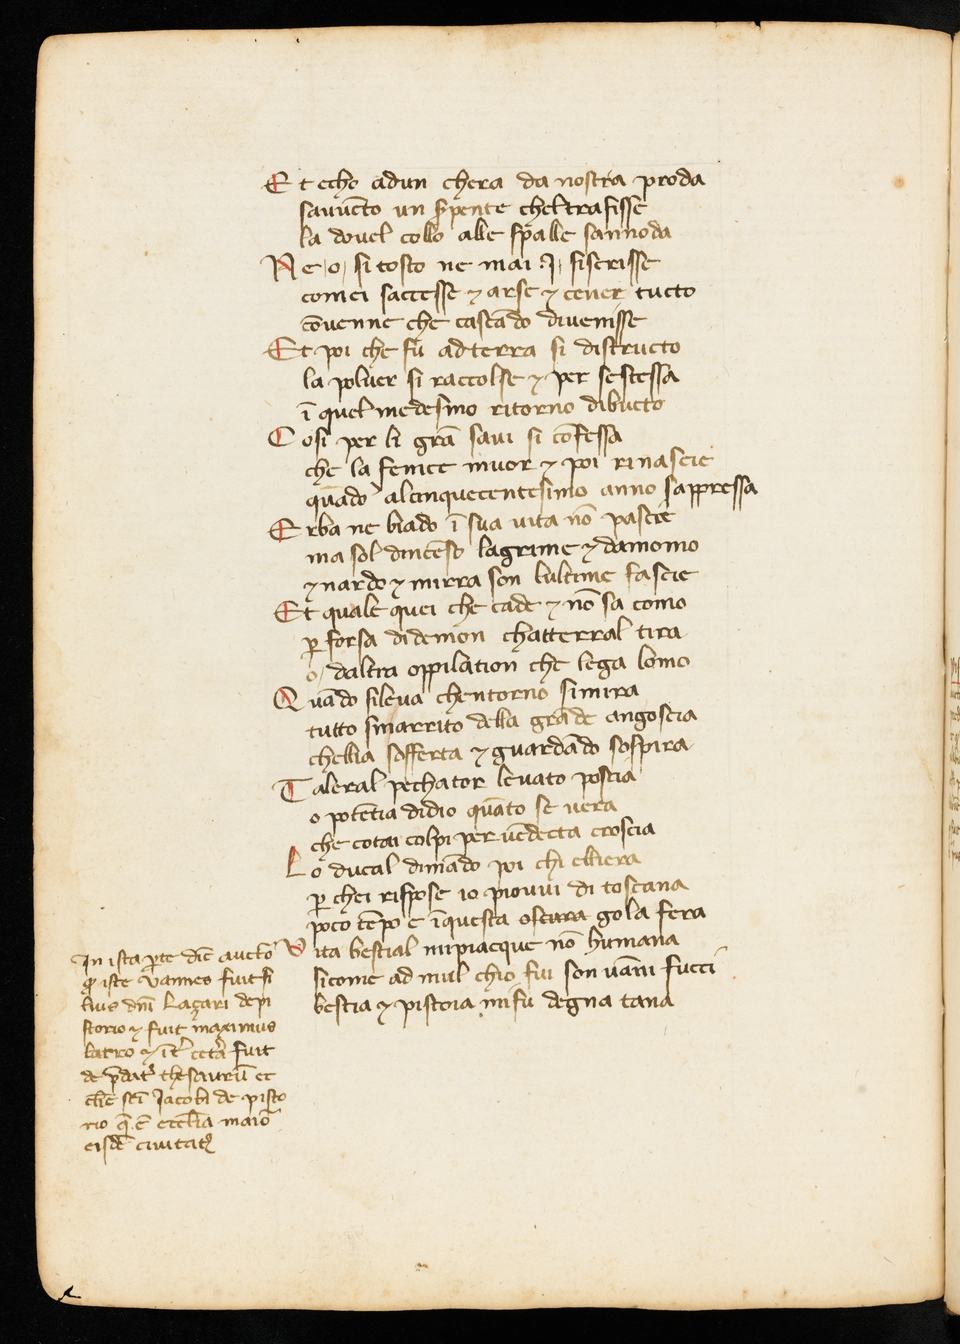 Et echo adun chera da nostra proda
sauuēto un sṕpente cheltrafisse
la douel collo alle spalle sannoda
Ne .o. si tosto ne mai .J. siscrisse
comei saccesse ⁊ arse ⁊ cener tucto
cōuenne che cascādo diuenisse
Et poi che fu adterra si distructo
la poluer si raccolse ⁊ per sestessa
ī quel medesmo ritorno dibucto
Cosi per li grā saui si cōfessa
che la fenice muor ⁊ poi rinascie
quādo alcinquecentesimo anno sappressa
Erba ne biado ī sua uita nō pascie
ma sol dincēso lagrime ⁊ damomo
⁊ nardo ⁊ mirra son lultime fascie
Et quale quei che cade ⁊ nō sa como
ꝑ forsa didemon chatterral tira
o, daltra oppilation che lega lomo
Quādo sileua chentorno simira
tutto smarrito della grāde angoscia
chellia sofferta ⁊ guardādo sospira
Taleral pechator leuato poscia
o potētia didio quāto se uera
che cotai colpi per uēdecta croscia
Lo ducal dimādo poi chi elliera
ꝑ chei rispose io piouui di toscana
poco tēpo e īquesta oscura gola fera
Vita bestial mipiacque nō humana
sicome ad mul chio fui son uāni fucci
bestia ⁊ pistoia mifu degna tana
In ista ꝑte dic̄ auctō
ꝙ iste vannes fuit fi
lius dn̄i Laçari de pi
storio ⁊ fuit maximus
latro ⁊ īt̄ cetā fuit
de p̄dat᷒ thesaurū ec
cl̄ie sc̄i Jacobi de pisto
rio q̄ ē eccl̄ia maiō
eisdē ciuitatꝭ